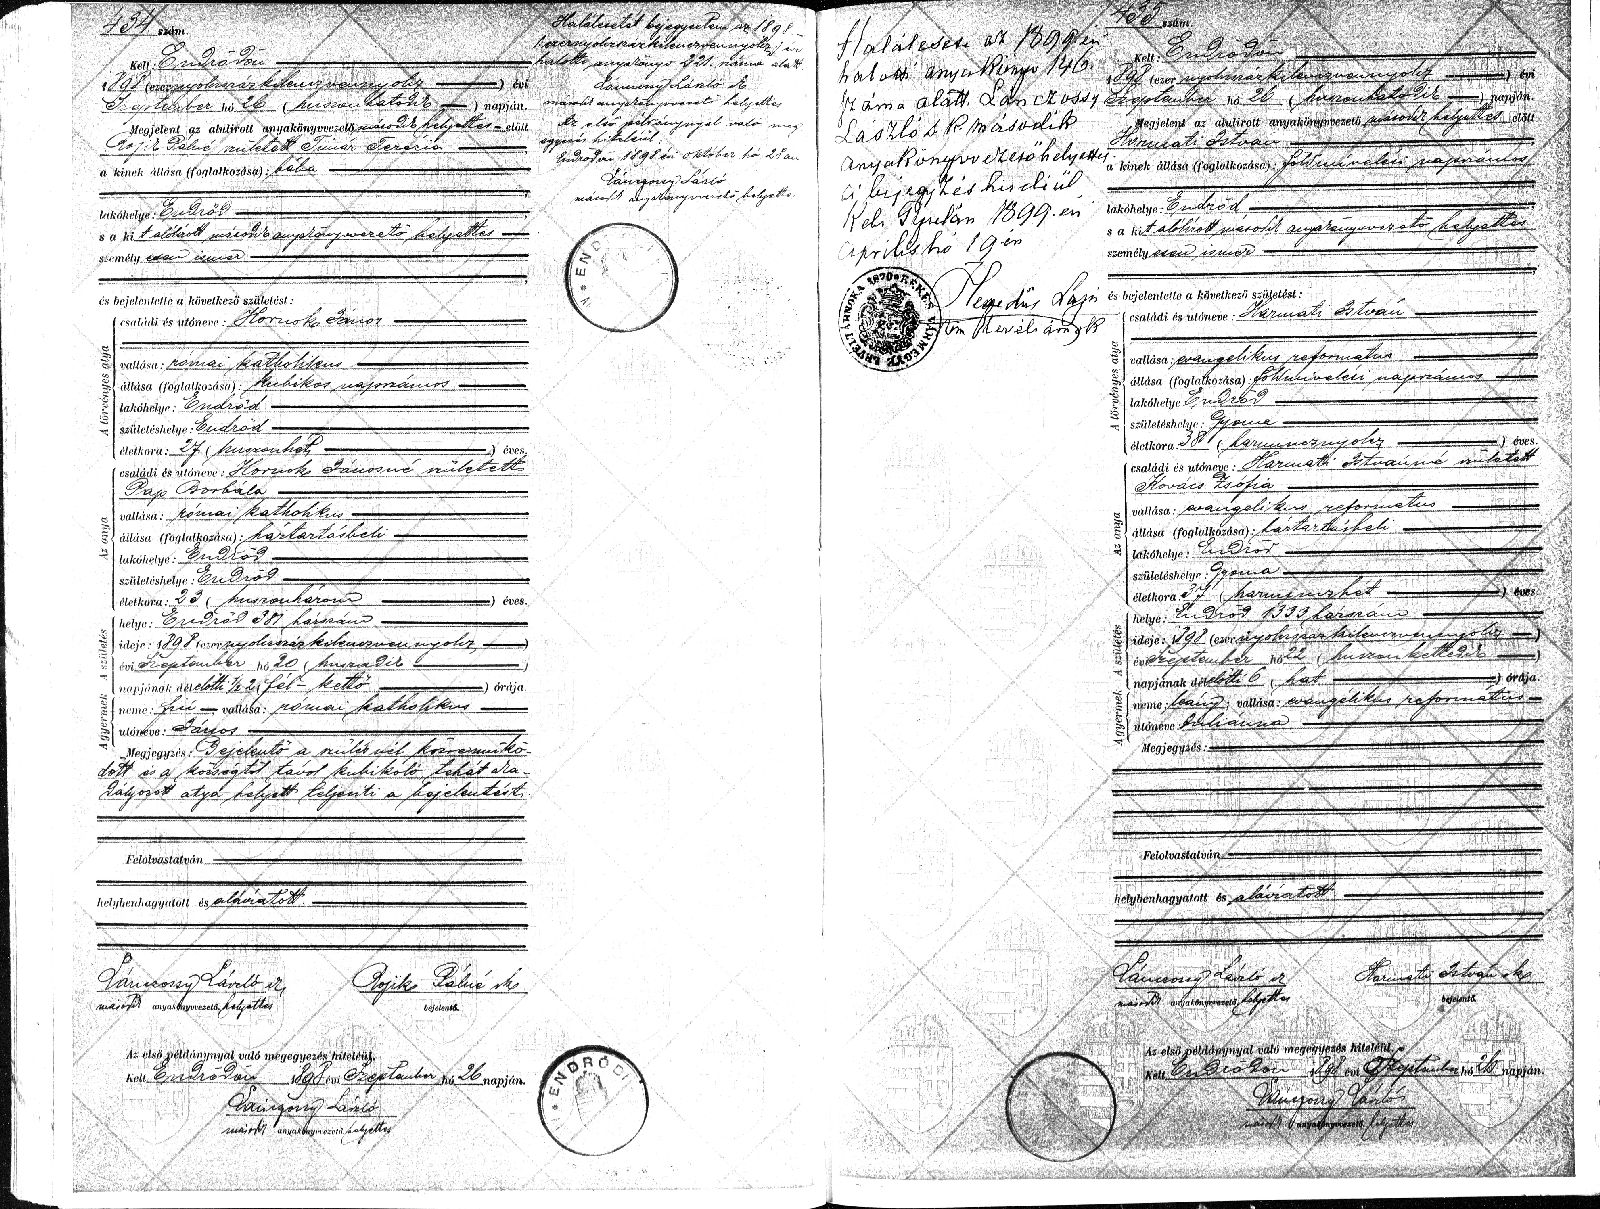 434 szám.
Kelt: Endrődön
1898 (ezernyolczszázkilenczvennyolcz) évi
Szeptember hó 26 (huszonhatodik) napján.
Megjelent az alulirott anyakönyvvezető második helyettes előtt
Pálné született Timár Terézia
a kinek állása (foglalkozása): bába
lakóhelye: Endrőd
s a kit alólirott második anyakönyvvezető helyettes
személyesen ismer
és bejelentette a következő születést:
A törvényes atya
családi és utóneve: Hornok János
vallása: római katholikus
állása (foglalkozása): kubikos napszámos
lakóhelye: Endrőd
születéshelye: Endrőd
életkora: 27 (huszonhét) éves.
Az anya
családi és utóneve: Hornok Jánosné született
Pap Borbála
vallása: római katholikus
állása (foglalkozása): háztartásbeli
lakóhelye: Endrőd
születéshelye: Endrőd
életkora: 23 (huszonhárom) éves.
A születés
helye: Endrőd 381 házszám
ideje: 1898 (ezernyolczszázkilenczvennyolcz)
évi Szeptember hó 20 (huszadik)
napjának délelőtti ½ 2 (fél kettő) órája.
A gyermek
neme: fiú vallása: római katholikus
utóneve: János
Megjegyzés: Bejelentő a szülésnél közremükö-
dött és a községtől távol kubikoló tehát aka-
dályozott atya helyett teljesiti a bejelentést.
Felolvastatván
helybenhagyatott és aláiratott
Lánczossy László sk
másodk anyakönyvvezető helyettes
Pálné
bejelentő.
Az első példánynyal való megegyezés hiteléül.
Kelt Endrődön 1898 évi Szeptember hó 26 napján.
Lánczossy László
másodk anyakönyvvezető helyettes
ENDRŐDI
Halálesetét bejegyeztem az 1898
(ezernyolczszázkilenczvennyolcz) évi
halotti anyakönyv 221. száma alatt.
Lánczossy László sk
másodk anyakönyvvezető helyettes
Az első példánynyal való meg-
egyezés hiteléül.
Endrődön 1898 évi október hó 23án
Lánczossy László
másodk anyakönyvvezető helyettes
END
Halálesete az 1899 évi
halotti anyakönyv 146.
száma alatt. Lánczossy
László s. k. második
anyakönyvvezető helyettes
E bejegyzés hiteléül
Kelt Gyulán 1899. évi
április hó 19én
Hegedűs
BÉKÉS VÁRMEGYE LEVÉLTÁRNOKA 1870
435 szám.
Kelt: Endrődön
1898 (ezernyolczszázkilenczvennyolcz) évi
Szeptember hó 26 (huszonhatodik) napján.
Megjelent az alulirott anyakönyvvezető másodk helyettes előtt
Harmati István
a kinek állása (foglalkozása): földmivelési napszámos
lakóhelye: Endrőd
s a kit alólirott másodk anyakönyvvezető helyettes
személyesen ismer
és bejelentette a következő születést:
A törvényes atya
családi és utóneve: Harmati István
vallása: evangelikus reformatus
állása (foglalkozása): földmivelési napszámos
lakóhelye: Endrőd
születéshelye: Gyoma
életkora: 38 (harmincznyolcz) éves.
Az anya
családi és utóneve: Harmati Istvánné született
Kovács Zsófia
vallása: evangelikus reformatus
állása (foglalkozása): háztartásbeli
lakóhelye: Endrőd
születéshelye: Gyoma
életkora: 37 (harminczhét) éves.
A születés
helye: Endrőd 1333 házszám
ideje: 1898 (ezernyolczszázkilenczvennyolcz)
évi Szeptember hó 22 (huszonkettedik)
napjának délelőtti 6 (hat) órája.
A gyermek
neme: leány; vallása: evangelikus reformatus
utóneve: Julianna
Megjegyzés:
Felolvastatván
helybenhagyatott és aláiratott
Lánczossy László sk
másodk anyakönyvvezető helyettes
Harmati István sk
bejelentő.
Az első példánynyal való megegyezés hiteléül.
Kelt Endrődön 1898 évi Szeptember hó 26 napján.
Lánczossy László
másodk anyakönyvvezető helyettes